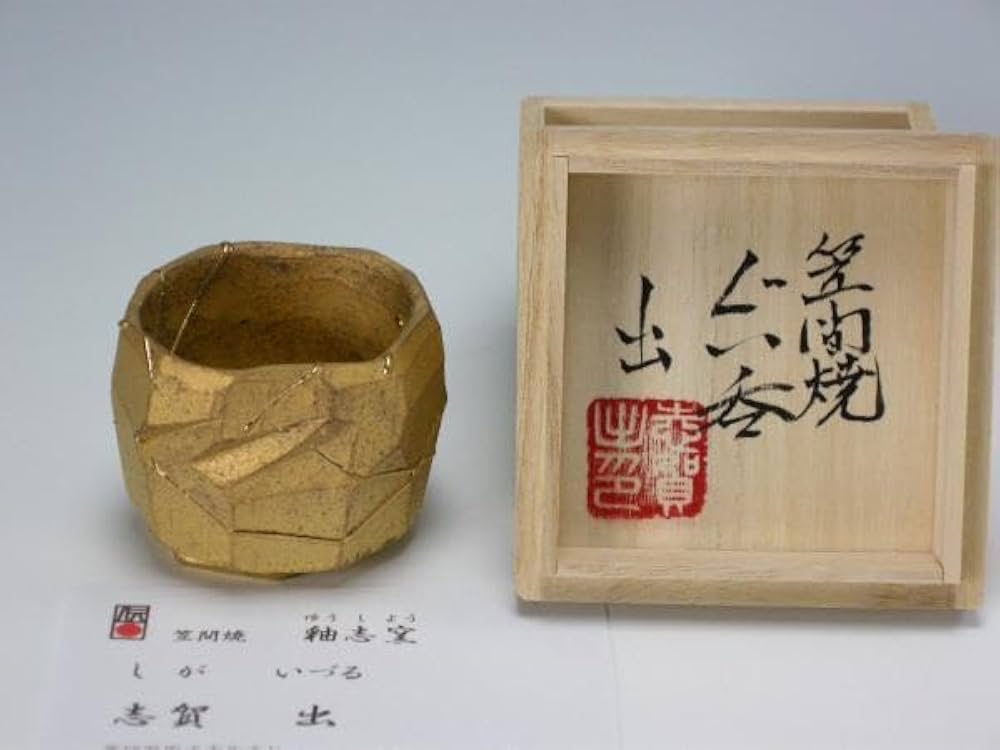 笠間焼
ぐい呑
出
志賀
伝
笠間焼 釉志窯
ゆうしよう
しが いづる
志賀 出